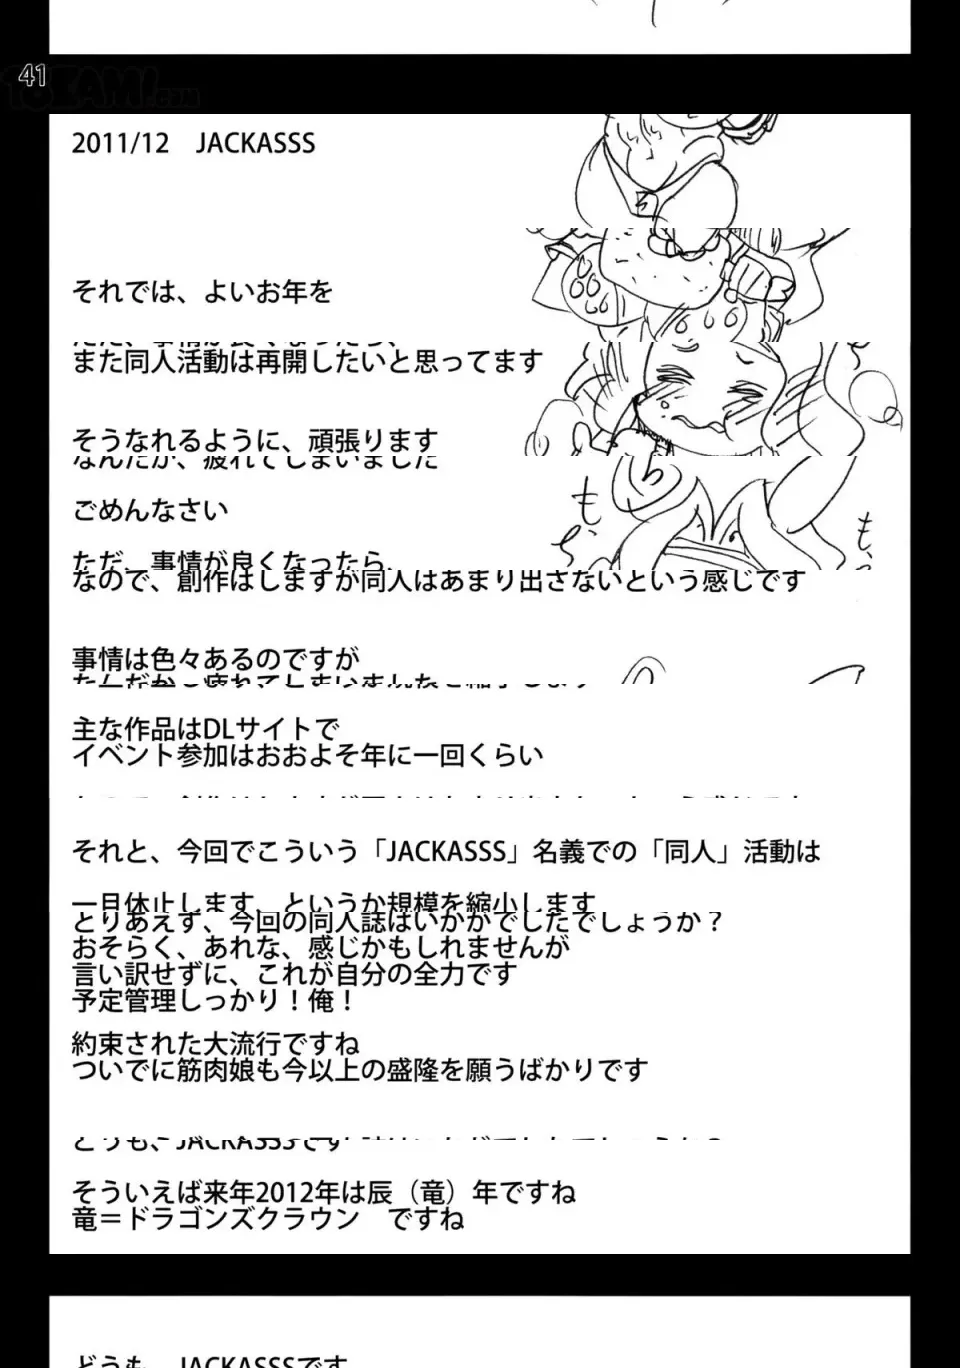 41
2011/12　JACKASSS
それでは、よいお年を
また同人活動は再開したいと思ってます
そうなれるように、頑張ります
なんだか、疲れてしまいました
ごめんなさい
ただ、事情が良くなったら、
なので、創作はしますが同人はあまり出さないという感じです
事情は色々あるのですが
主な作品はDLサイトで
イベント参加はおおよそ年に一回くらい
それと、今回でこういう「JACKASSS」名義での「同人」活動は
一旦休止します、というか規模を縮小します
とりあえず、今回の同人誌はいかがでしたでしょうか？
おそらく、あれな、感じかもしれませんが
言い訳せずに、これが自分の全力です
予定管理しっかり！俺！
約束された大流行ですね
ついでに筋肉娘も今以上の盛隆を願うばかりです
そういえば来年2012年は辰（竜）年ですね
竜＝ドラゴンズクラウン　ですね
どうも、JACKASSSです